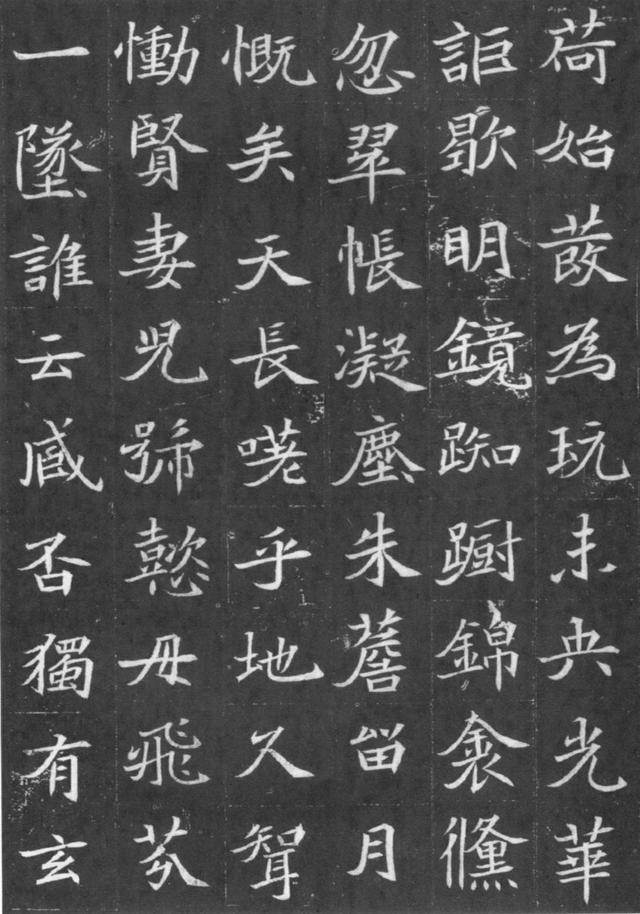 荷始為玩未央光華
詎歇明鏡踟蹰錦衾儵
忽翠帳凝塵朱簷留月
慨矣天長嗟乎地久聟
慟賢妻兒號懿母飛芬
一墜誰云臧否獨有玄